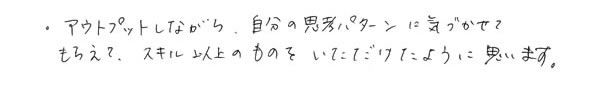 ・アウトプットしながら、自分の思考パターンに気づかせて
もらえて、スキル以上のものをいただけたように思います。